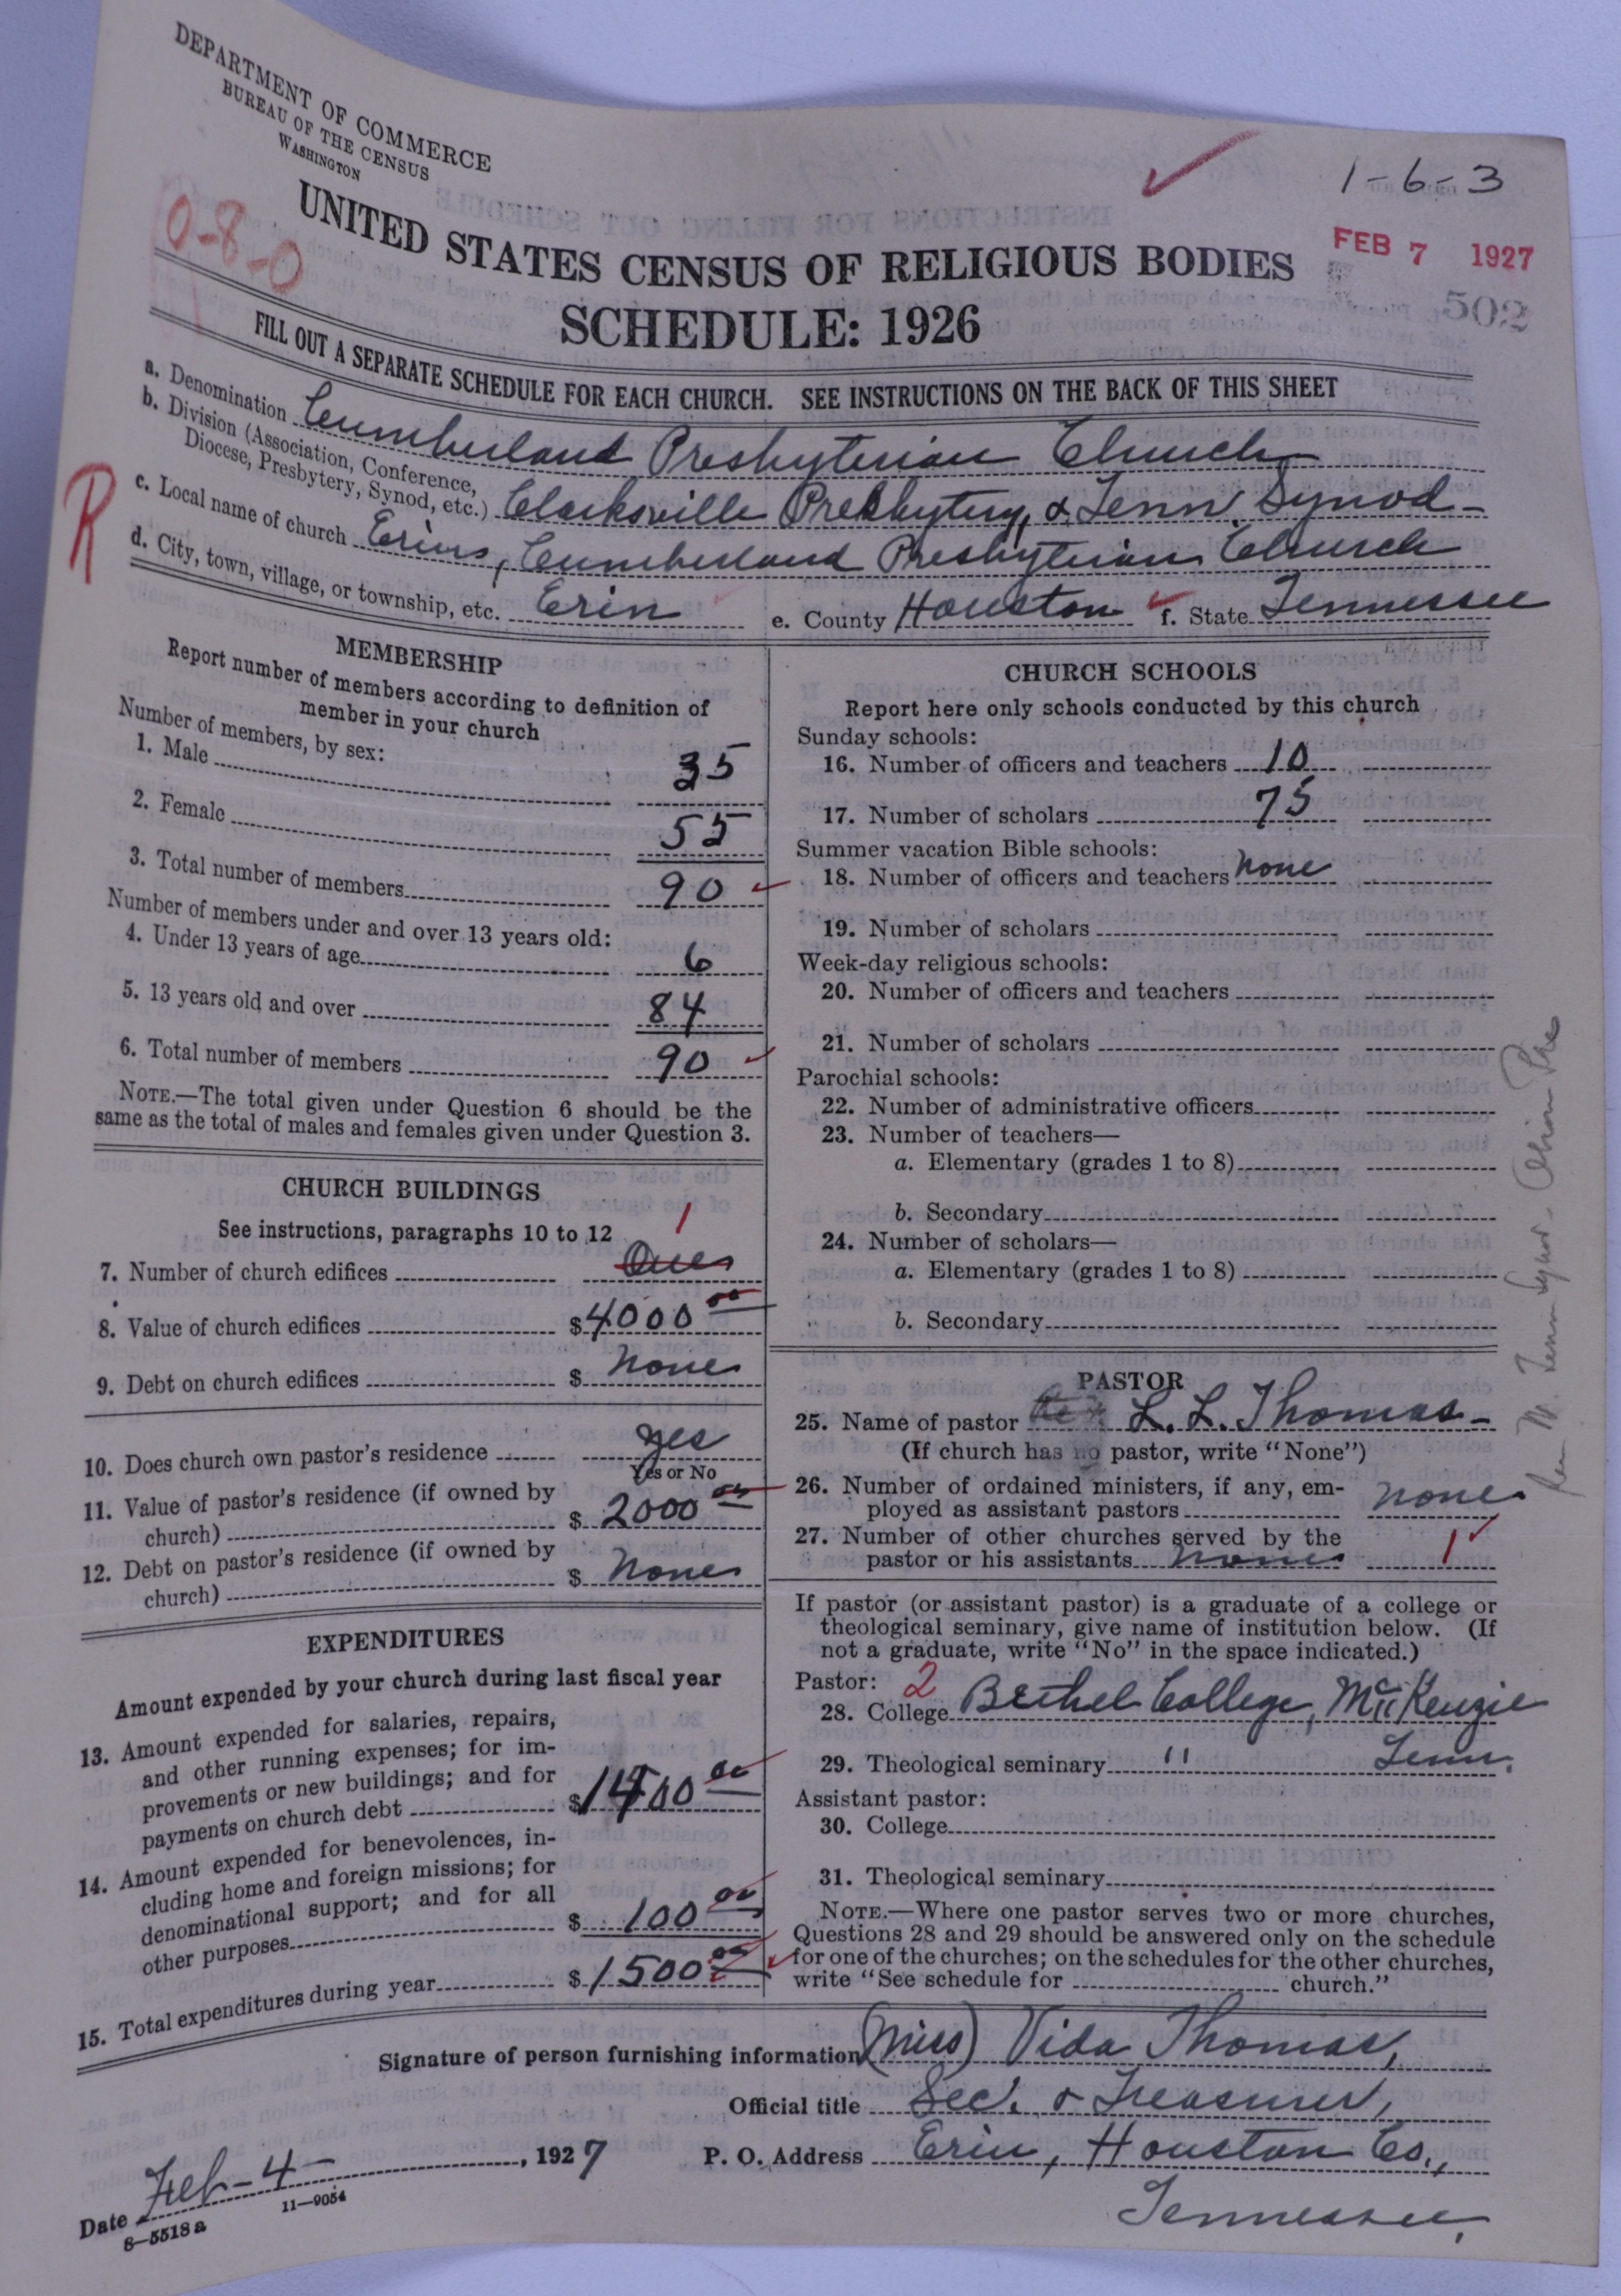 DEPARTMENT OF COMMERCE
BUREAU OF THE CENSUS
WASHINGTON
1-6-3
0-8-0
UNITED STATES CENSUS OF RELIGIOUS BODIES
FEB 7 1927
502
SCHEDULE: 1926
FILL OUT A SEPARATE SCHEDULE FOR EACH CHURCH. SEE INSTRUCTIONS ON THE BACK OF THIS SHEET
a. Denomination Cumberland Presbyterian Church
b. Division (Association, Conference,
Diocese, Presbytery, Synod, etc.) Clarksville Presbytery, & Tenn. Synod-
R
c. Local name of church Erin, Cumberland Presbyterian Church
d. City, town, village, or township, etc. Erin e. County Houston f. State Tennessee
MEMBERSHIP
Report number of members according to definition of
member in your church
Number of members, by sex:
1. Male 35
2. Female 55
3. Total number of members 90
Number of members under and over 13 years old:
4. Under 13 years of age 6
5. 13 years old and over 84
6. Total number of members 90
NOTE.—The total given under Question 6 should be the
same as the total of males and females given under Question 3.
CHURCH BUILDINGS
See instructions, paragraphs 10 to 12
1
7. Number of church edifices One
8. Value of church edifices $4000 00
9. Debt on church edifices $ None
10. Does church own pastor's residence yes
Yes or No
11. Value of pastor's residence (if owned by
church) $ 2000 00
12. Debt on pastor's residence (if owned by
church) $ None
EXPENDITURES
Amount expended by your church during last fiscal year
13. Amount expended for salaries, repairs,
and other running expenses; for im-
provements or new buildings; and for
payments on church debt $1400 00
14. Amount expended for benevolences, in-
cluding home and foreign missions; for
denominational support; and for all
other purposes $ 100 00
15. Total expenditures during year $1500 00
CHURCH SCHOOLS
Report here only schools conducted by this church
Sunday schools:
16. Number of officers and teachers 10
17. Number of scholars 75
Summer vacation Bible schools:
18. Number of officers and teachers None
19. Number of scholars
Week-day religious schools:
20. Number of officers and teachers
21. Number of scholars
Parochial schools:
22. Number of administrative officers
23. Number of teachers—
a. Elementary (grades 1 to 8)
b. Secondary
24. Number of scholars—
a. Elementary (grades 1 to 8)
b. Secondary
PASTOR
25. Name of pastor L. L. Thomas-
(If church has no pastor, write "None")
26. Number of ordained ministers, if any, em-
ployed as assistant pastors none
27. Number of other churches served by the
pastor or his assistants None 1
If pastor (or assistant pastor) is a graduate of a college or
theological seminary, give name of institution below. (If
not a graduate, write "No" in the space indicated.)
Pastor: 2
28. College Bethel College, McKenzie
29. Theological seminary " Tenn.
Assistant pastor:
30. College
31. Theological seminary
NOTE.—Where one pastor serves two or more churches,
Questions 28 and 29 should be answered only on the schedule
for one of the churches; on the schedules for the other churches,
write "See schedule for church."
Signature of person furnishing information (Miss) Vida Thomas,
Official title Sec. & Treasurer,
Date Feb-4-, 1927 P. O. Address Erin, Houston Co.,
Tennessee.
8-5518a 11-9054